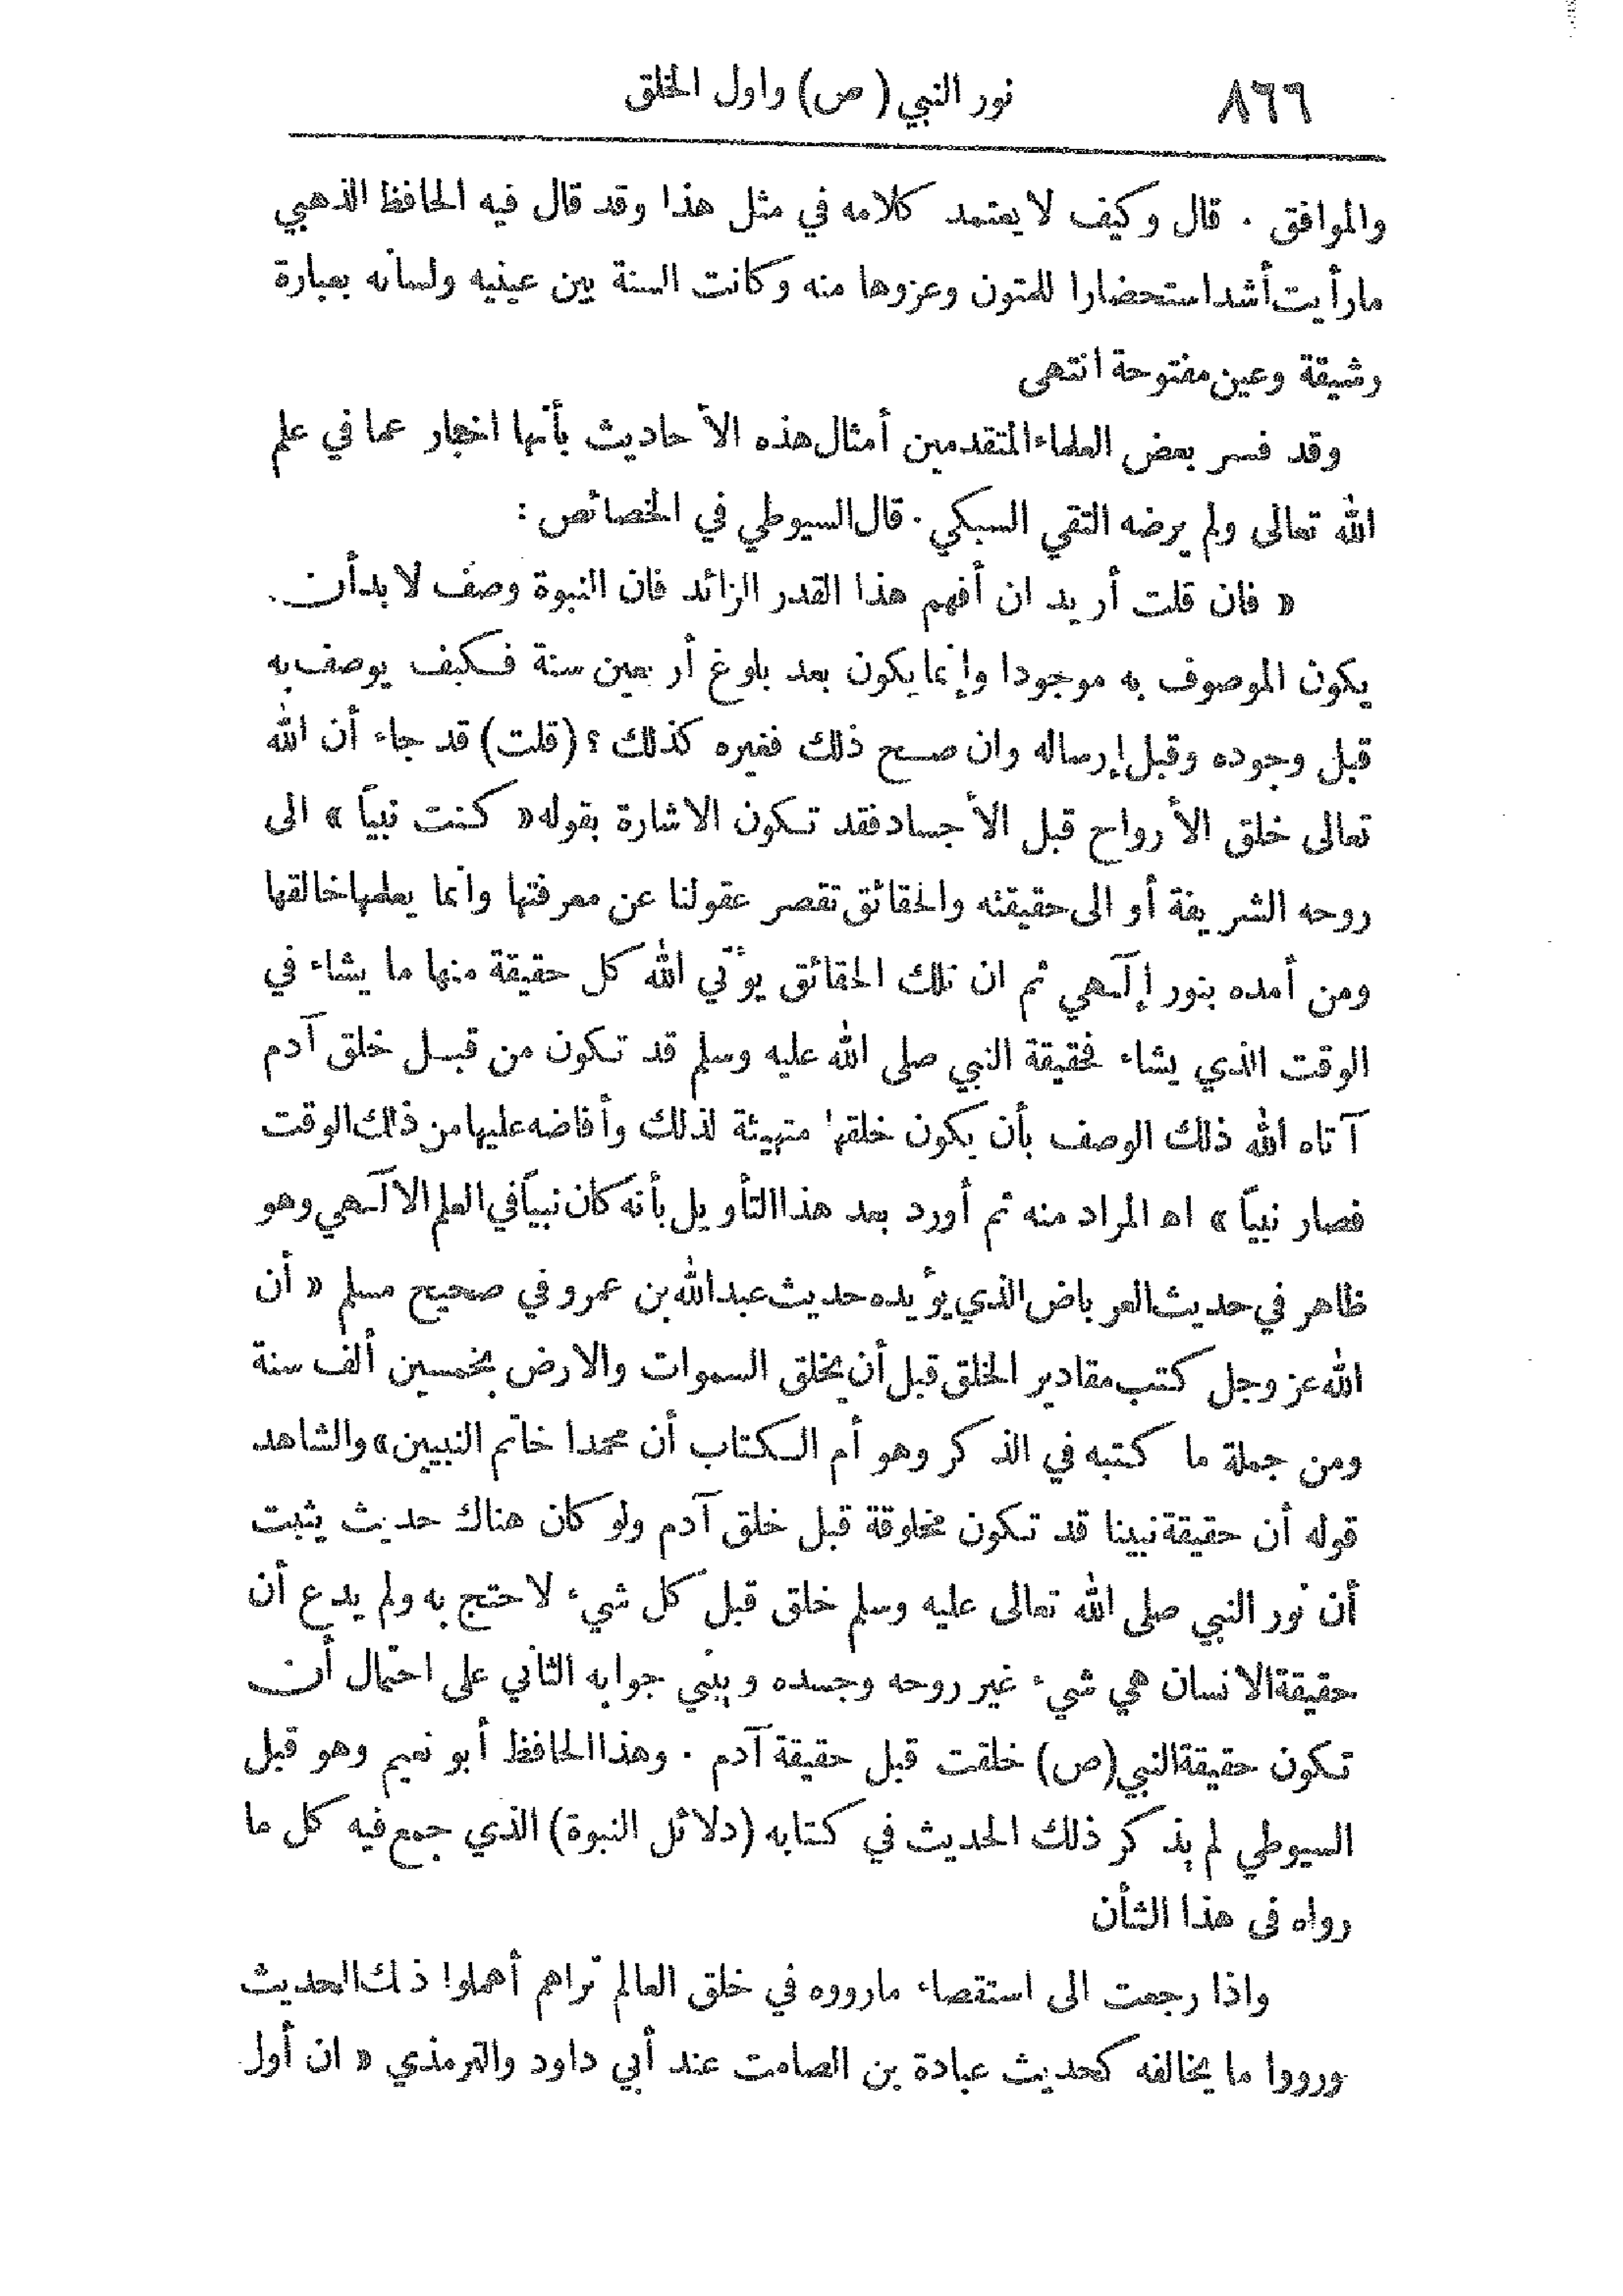 ٨٦٦ نور النبي (ص) واول الخلق
والموافق . قال وكيف لا يعتمد كلامه في مثل هذا وقد قال فيه الحافظ الذهبي
ما رأيت أشد استحضارا للمتون وعزوها منه وكانت السنة بين عينيه ولسانه بعبارة
رشيقة وعين مفتوحة انتهى
وقد فسر بعض العلماء المتقدمين أمثال هذه الأحاديث بأنها اخبار عما في علم
الله تعالى ولم يرضه التقي السبكي . قال السيوطي في الخصائص :
« فان قلت أريد ان أفهم هذا القدر الزائد فان النبوة وصف لا بد أن
يكون الموصوف به موجودا وإنما يكون بعد بلوغ أربعين سنة فكيف يوصف به
قبل وجوده وقبل إرساله وان صح ذلك فغيره كذلك ؟ (قلت) قد جاء أن الله
تعالى خلق الأرواح قبل الأجساد فقد تكون الاشارة بقوله « كنت نبياً » الى
روحه الشريفة أو الى حقيقته والحقائق تقصر عقولنا عن معرفتها وانما يعلمها خالقها
ومن أمده بنور إلٓهي ثم ان تلك الحقائق يؤتي الله كل حقيقة منها ما يشاء في
الوقت الذي يشاء فحقيقة النبي صلى الله عليه وسلم قد تكون من قبل خلق آدم
آتاه الله ذلك الوصف بأن يكون خلقها متهيئة لذلك وأفاضه عليها من ذلك الوقت
فصار نبياً » اه المراد منه ثم أورد بعد هذا التأويل بأنه كان نبياً في العلم الالٓهي وهو
ظاهر في حديث العرباض الذي يؤيده حديث عبد الله بن عمرو في صحيح مسلم « أن
الله عز وجل كتب مقادير الخلق قبل أن يخلق السموات والارض بخمسين ألف سنة
ومن جملة ما كتبه في الذكر وهو أم الكتاب أن محمدا خاتم النبيين » والشاهد
قوله أن حقيقة نبينا قد تكون مخلوقة قبل خلق آدم ولو كان هناك حديث يثبت
أن نور النبي صلى الله تعالى عليه وسلم خلق قبل كل شيء لاحتج به ولم يدع أن
حقيقة الانسان هي شيء غير روحه وجسده ويبني جوابه الثاني على احتمال أن
تكون حقيقة النبي (ص) خلقت قبل حقيقة آدم . وهذا الحافظ أبو نعيم وهو قبل
السيوطي لم يذكر ذلك الحديث في كتابه (دلائل النبوة) الذي جمع فيه كل ما
رواه في هذا الشأن
واذا رجعت الى استقصاء ما رووه في خلق العالم تراهم أهملوا ذلك الحديث
ورووا ما يخالفه كحديث عبادة بن الصامت عند أبي داود والترمذي « ان أول